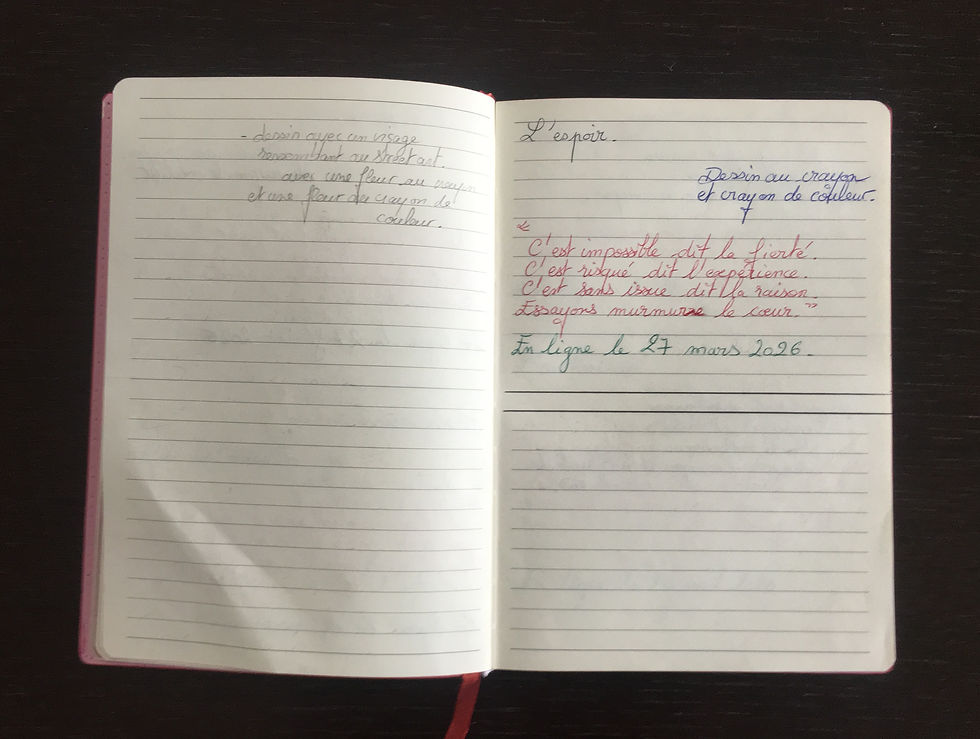 - dessin avec un visage
ressemblant au street art.
avec une fleur au crayon
et une fleur au crayon de
couleur.
L'espoir.
Dessin au crayon
et crayon de couleur.
"
C'est impossible dit la fierté.
C'est risqué dit l'expérience.
C'est sans issue dit la raison.
Essayons murmure le cœur."
En ligne le 27 mars 2026.